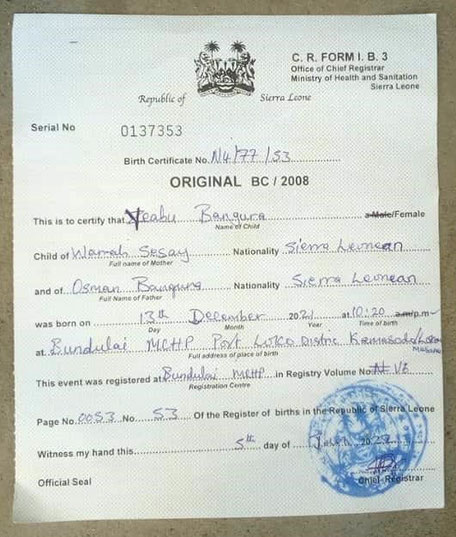 C. R. FORM I. B. 3
Office of Chief Registrar
Ministry of Health and Sanitation
Sierra Leone
Republic of Sierra Leone
Serial No 0137353
Birth Certificate No. N4/77/53
ORIGINAL BC / 2008
This is to certify that Yeabu Bangura a Male/Female
Name of Child
Child of Wamah Sesay Nationality Sierra Leonean
Full name of Mother
and of Osman Bangura Nationality Sierra Leonean
Full Name of Father
was born on 13th December 2021 at 10:20 a.m/p.m
Day Month Year Time of birth
at Bundulai MCHP Port Loko Distric
Full address of place of birth
This event was registered at Bundulai MCHP in Registry Volume No.
Registration Centre
Page No. 0053 No 53 Of the Register of births in the Republic of Sierra Leone
Witness my hand this 5th day of
Official Seal Chief-Registrar